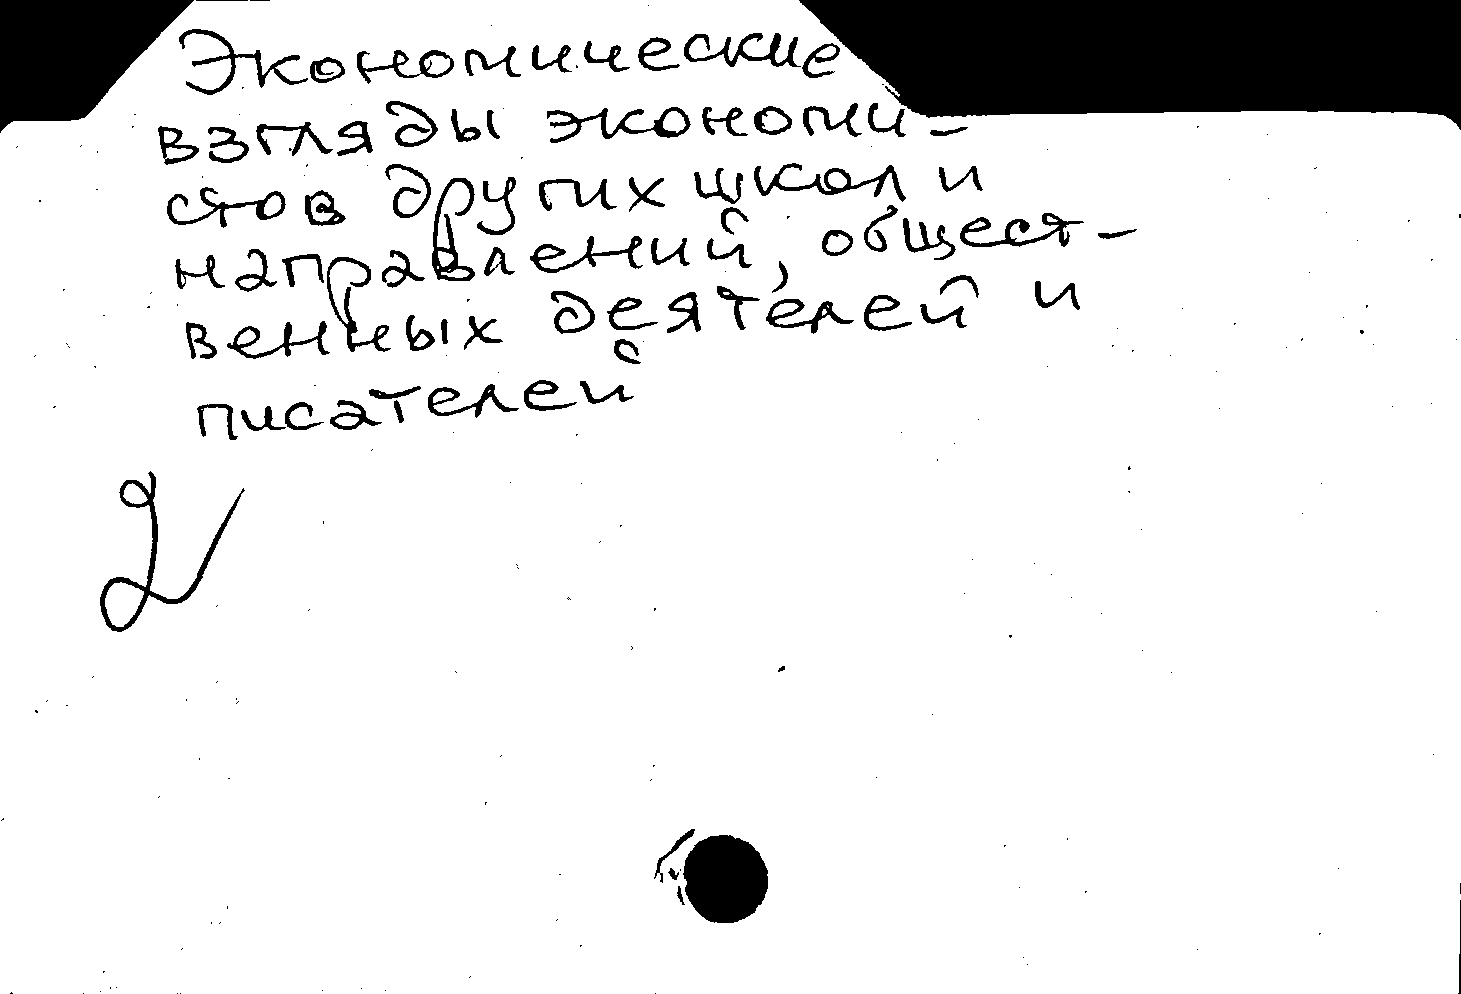 Экономические
взгляды экономи-
стов других школ и
направлений, общест-
венных деятелей и
писателей